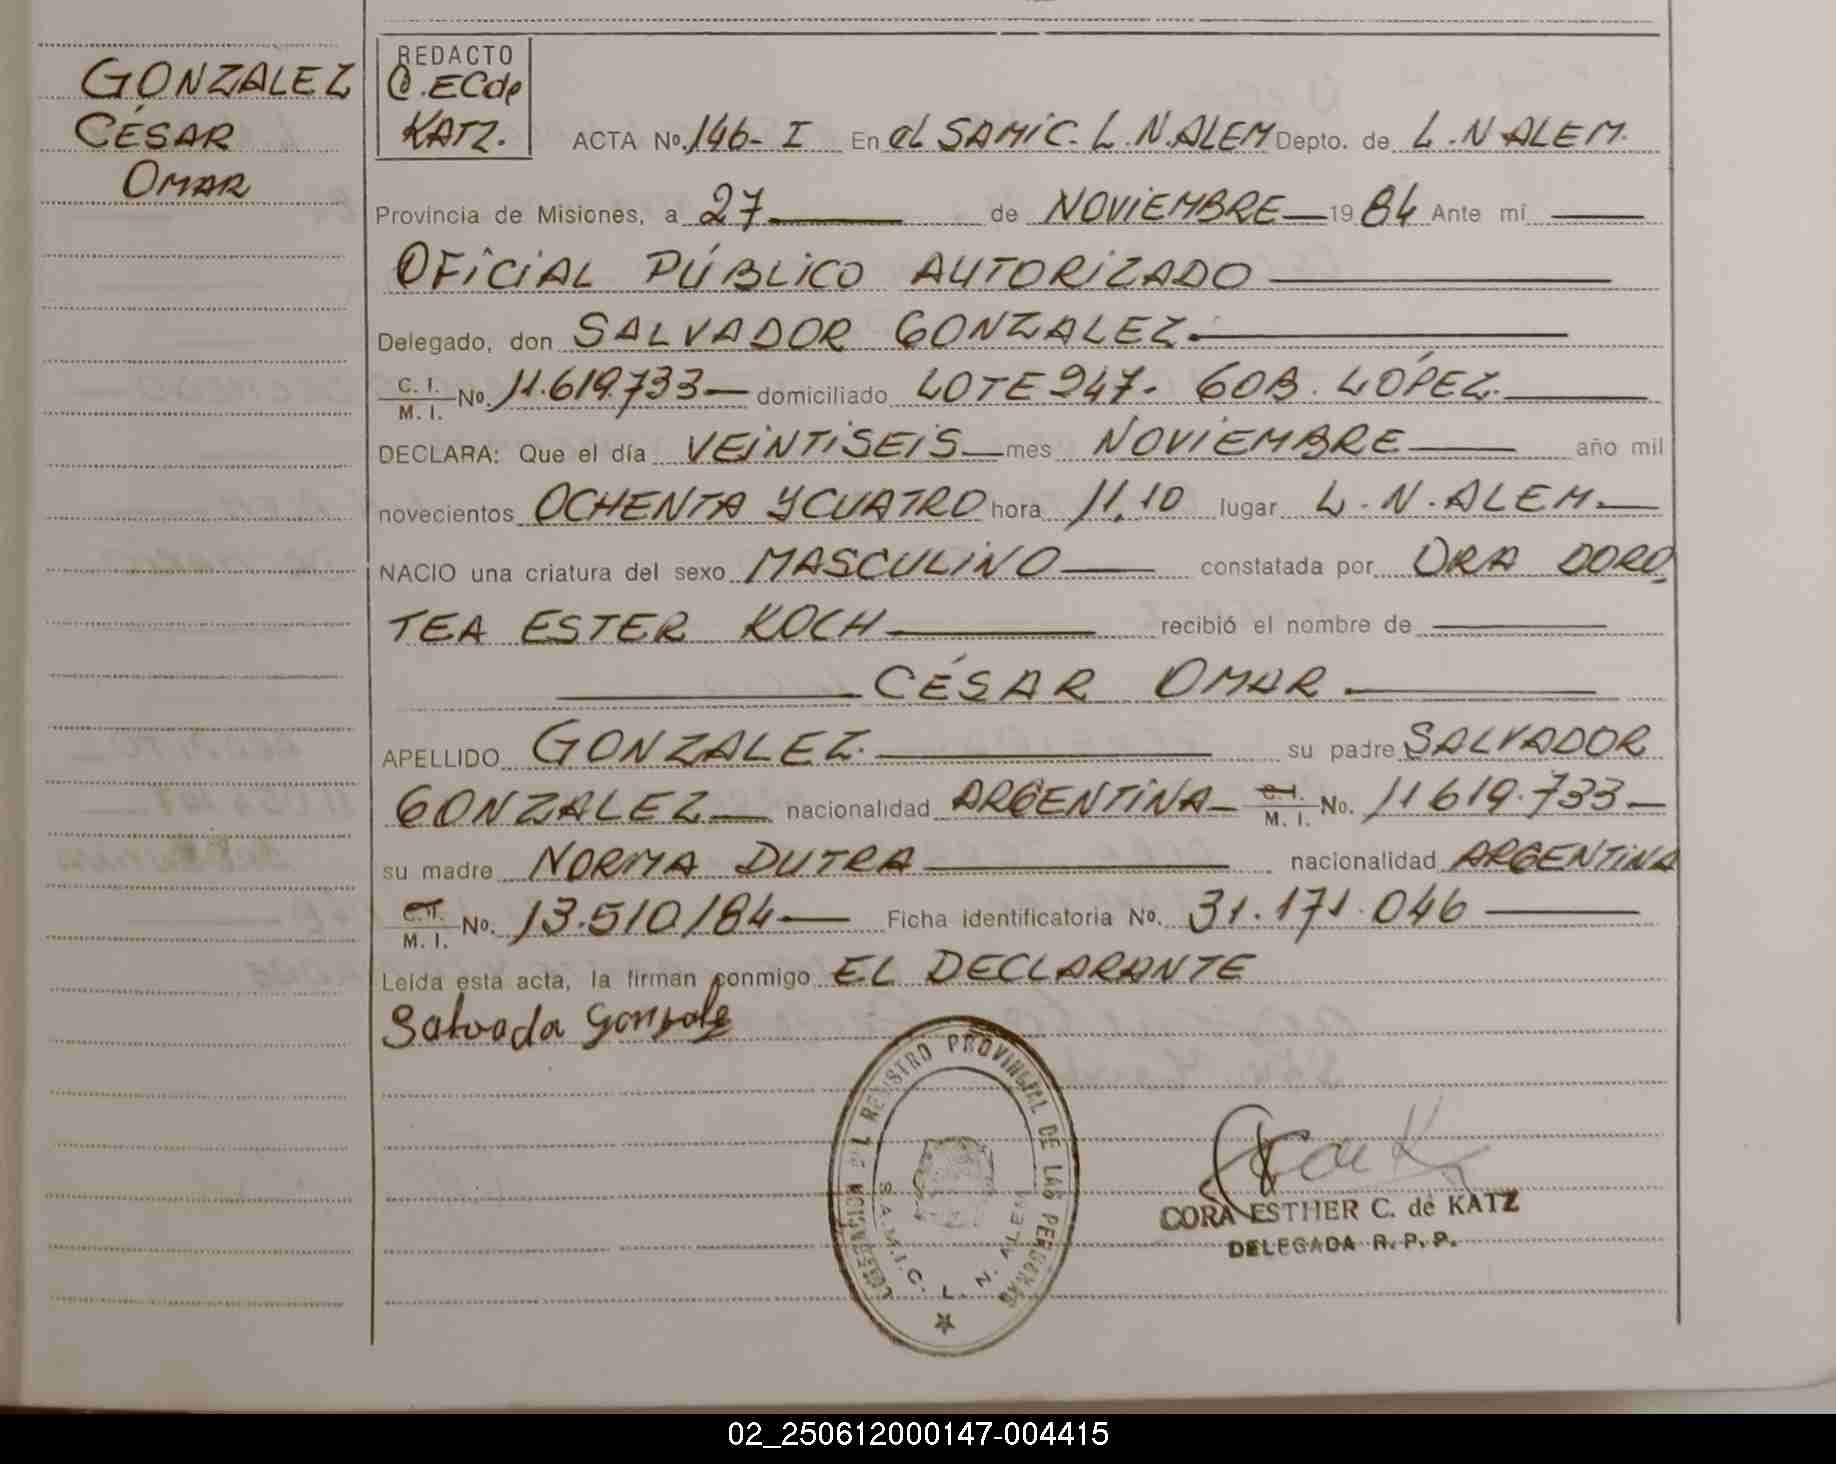 GONZALEZ
CÉSAR
OMAR
REDACTO
C.ECde
KATZ.
ACTA Nº. 146- I En el SAMIC. L.N.ALEM Depto. de L.N ALEM.
Provincia de Misiones, a 27 de NOVIEMBRE 19 84 Ante mí
OFICIAL PÚBLICO AUTORIZADO
Delegado, don SALVADOR GONZALEZ
C. I. M. I. Nº. 11.619.733 domiciliado LOTE 247. GOB. LÓPEZ.
DECLARA: Que el día VEINTISEIS mes NOVIEMBRE año mil
novecientos OCHENTA Y CUATRO hora 11,10 lugar L.N.ALEM.
NACIO una criatura del sexo MASCULINO constatada por DRA DORO
TEA ESTER KOCH recibió el nombre de
CÉSAR OMAR
APELLIDO GONZALEZ su padre SALVADOR
GONZALEZ nacionalidad ARGENTINA C. I. M. I. No. 11619.733
su madre NORMA DUTRA nacionalidad ARGENTINA
C. I. M. I. Nº. 13.510184 Ficha identificatoria Nº. 31.171.046
Leída esta acta, la firman conmigo EL DECLARANTE
Salvada Gonzale
REGISTRO PROVINCIAL DE LAS PERSONAS
S.A.M.I.C. L. N. ALEM
CORA ESTHER C. de KATZ
DELEGADA R. P. P.
02_250612000147-004415